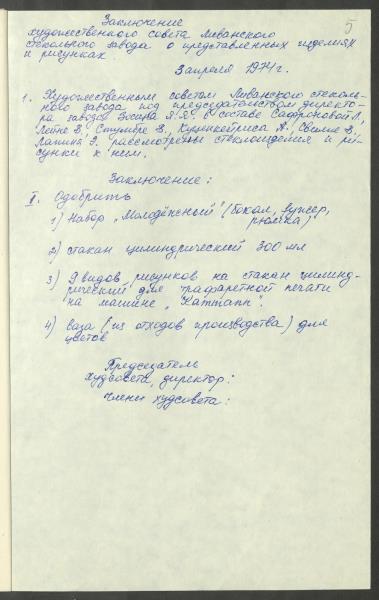 5
Заключение
художественного совета Ливанского
стекольного завода о представленных изделиях
и рисунках
3 апреля 1974 г.
1. Художественным советом Ливанского стеколь-
ного завода под председательством директо-
ра завода Я.Я. в составе Сафроновой Л.,
Лейне В., В., А., В.,
Лапиня Э. рассмотрены стеклоизделия и ри-
сунки к ним.
Заключение:
II. Одобрить
1) Набор „Молодёжный" (бокал, фужер,
рюмка)
2) стакан цилиндрический 300 мл
3) 9 видов рисунков на стакан цилинд-
рический для трафаретной печати
на машине „Kammann".
4) ваза (из отходов производства) для
цветов
Председатель
худсовета, директор:
Члены худсовета: